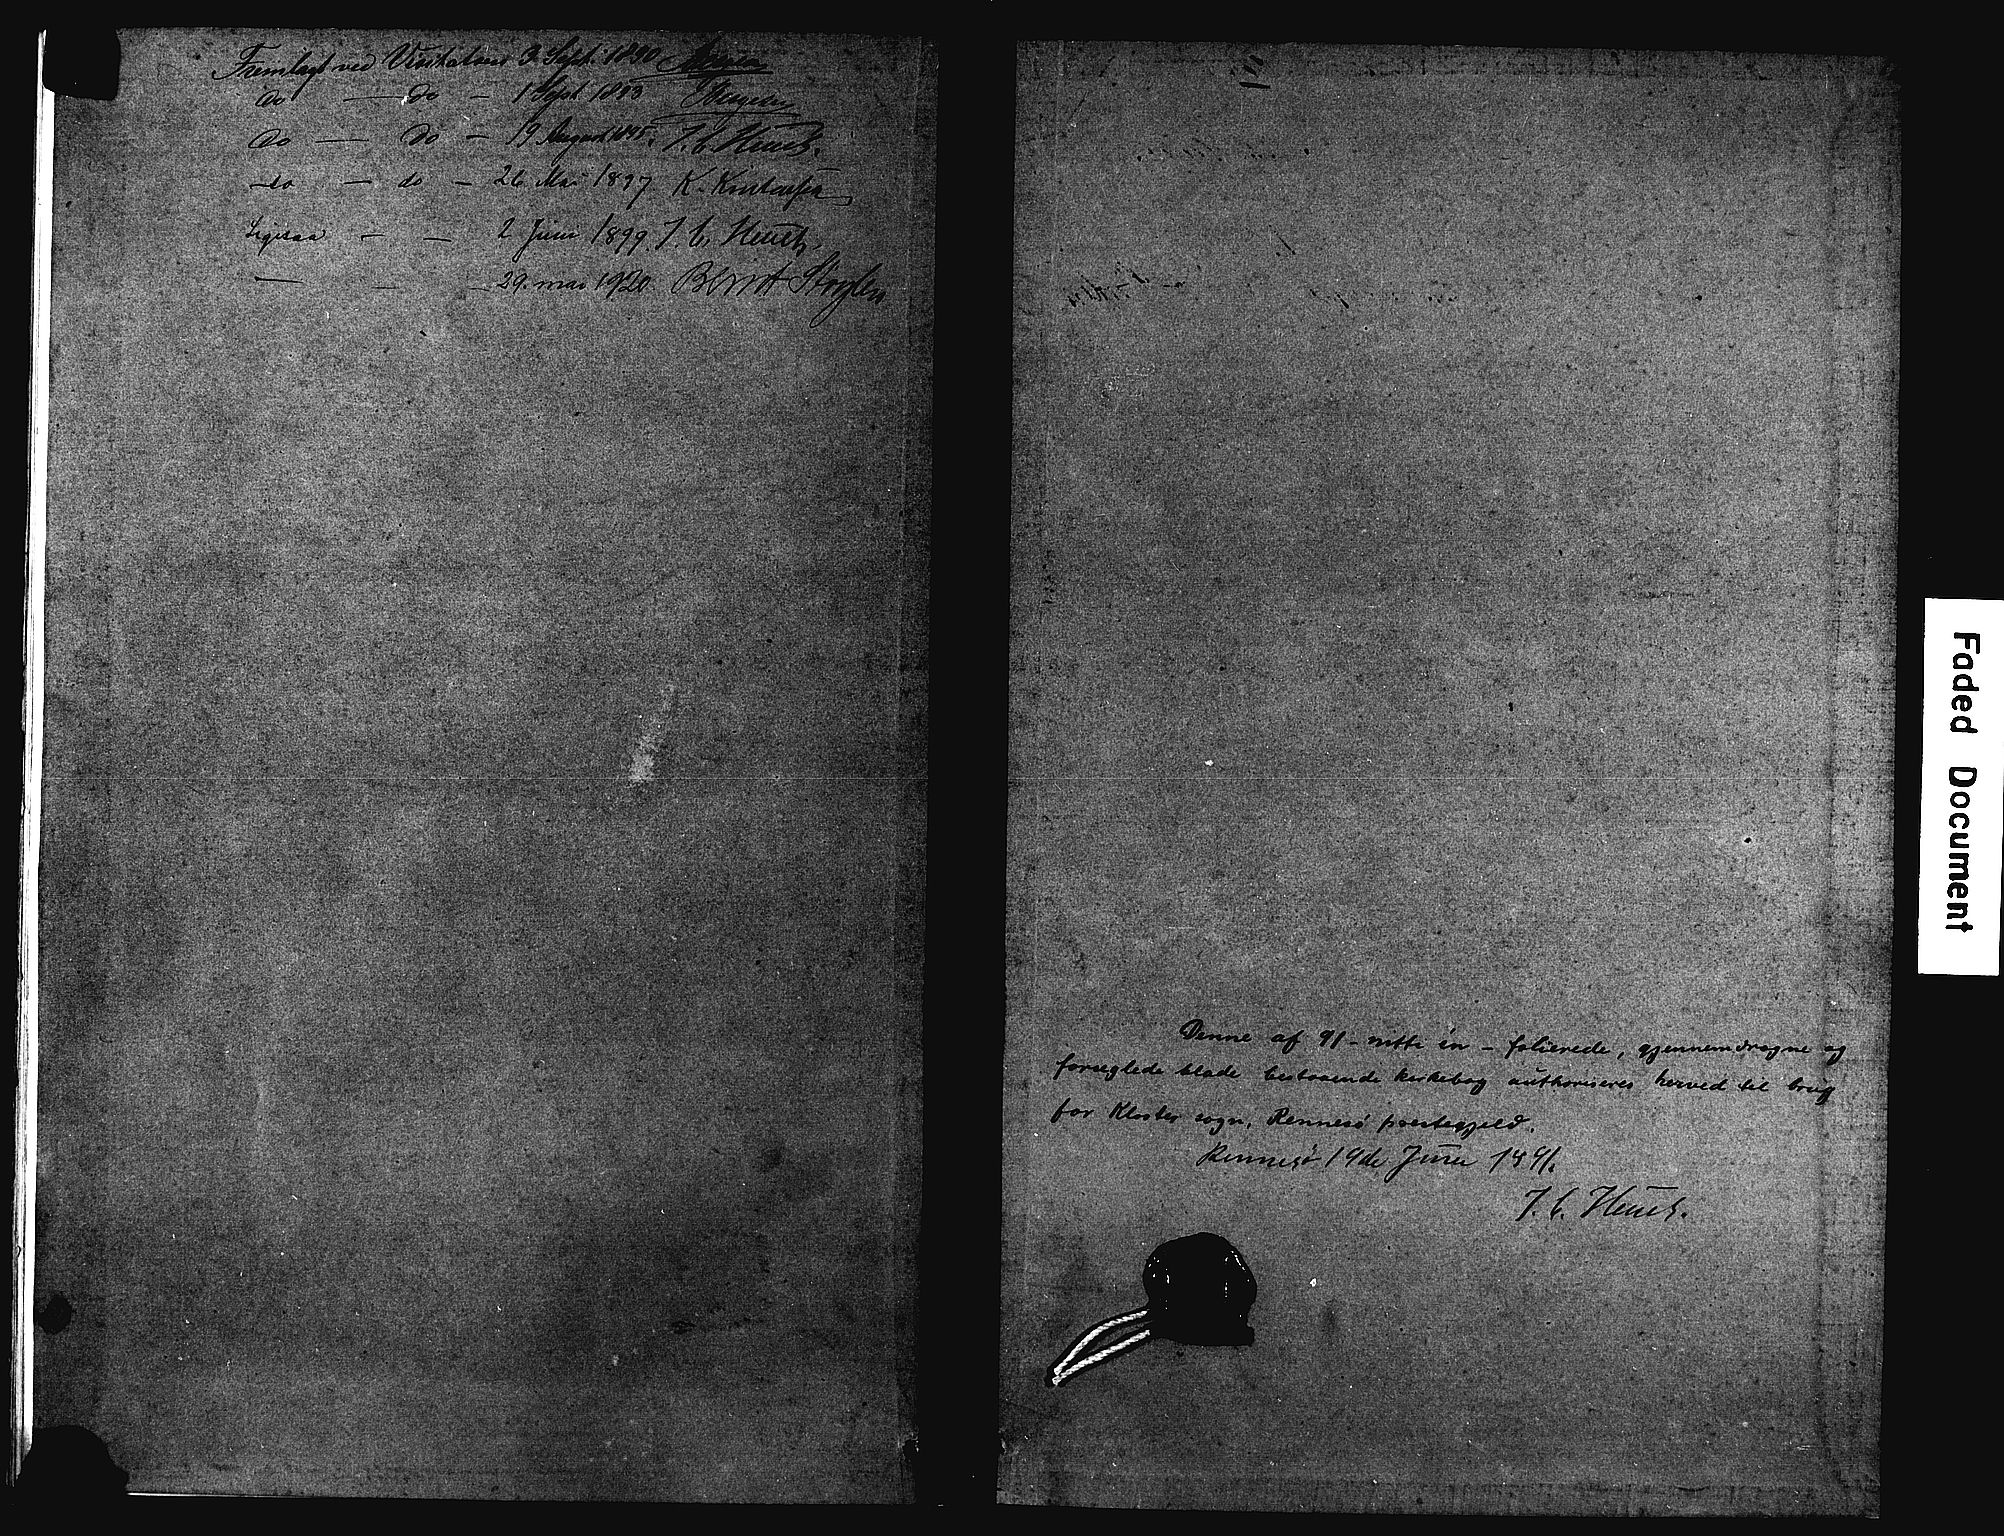 Fremlagt ved Visitatsen 3 Sept. 1890
do — do — 1 Sept 1893
do — do — 19 August 1895. J. C. Heuch.
do — do — 26 Mai 1897 K. Knutsen
Ligesaa — — 2 Juni 1899. J. C. Heuch.
— — — 29. mai 1920 Bernt Støylen
Denne af 91 - nitti en - folierede, gjennemdragne og
forseglede blade bestaaende kirkebog authoriseres herved til brug
for Kloster sogn, Rennesø præstegjeld.
Rennesø 19de Juni 1891.
J. C. Heuch.
Faded Document